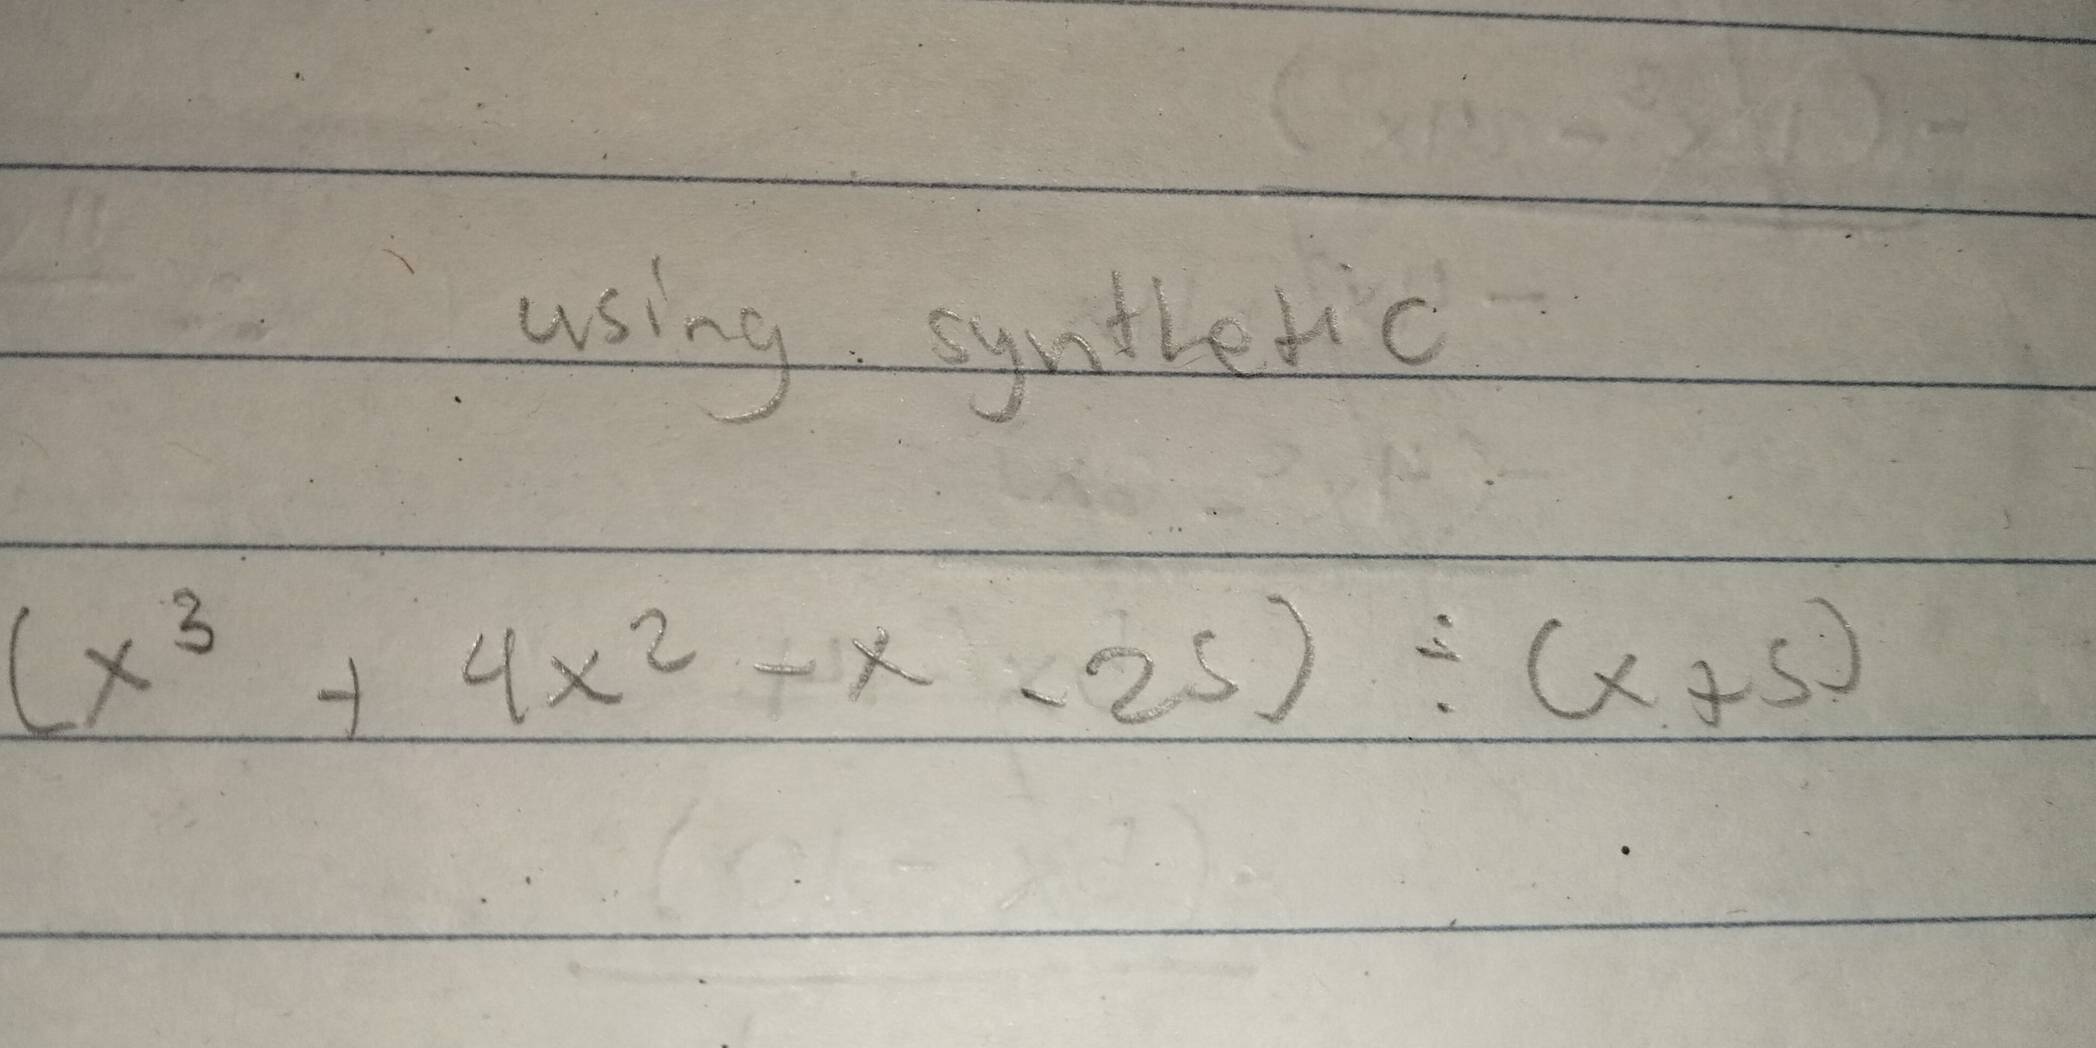 using synthetic
(x³ + 4x² - x - 25) ÷ (x + 5)